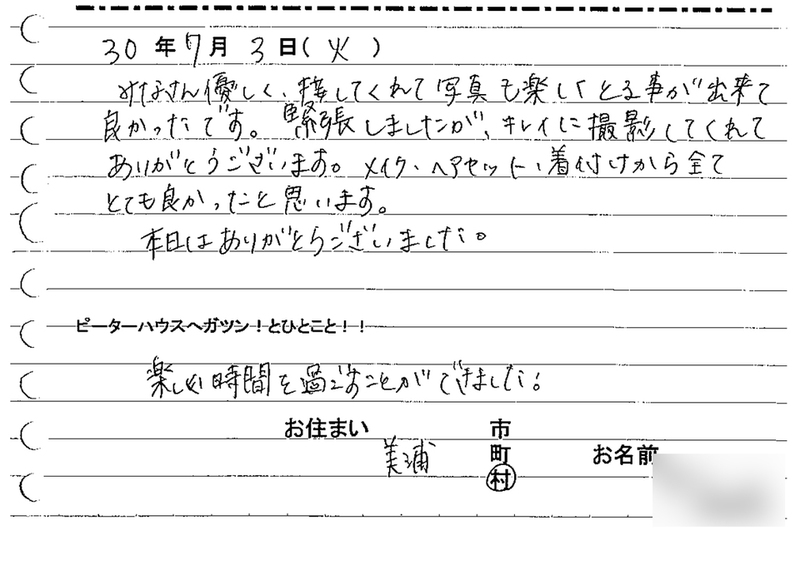 30年7月3日(火)
みなさん優しく、接してくれて写真も楽しくとる事が出来て
良かったです。緊張しましたが、キレイに撮影してくれて
ありがとうございます。メイク、ヘアセット、着付けから全て
とても良かったと思います。
本日はありがとうございました。
ピーターハウスへガツン！とひとこと！！
楽しい時間を過ごすことができました！
お住まい 美浦 市 町 村 お名前